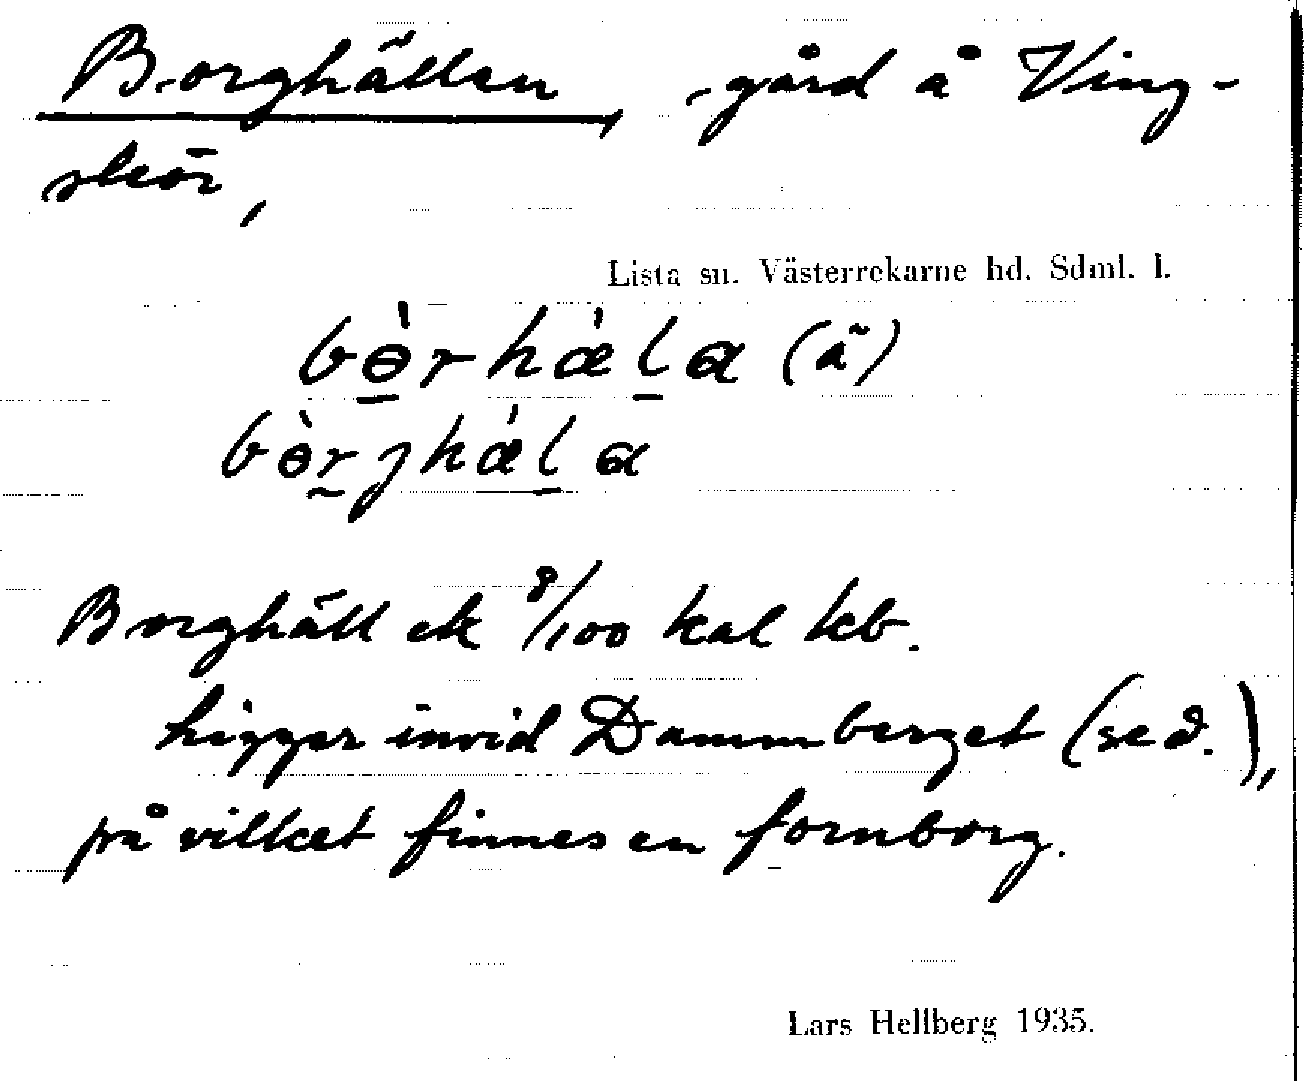 Borghällen, -gård å Ving-
skär,
Lista sn. Västerrekarne hd. Sdml. l.
bɵ̀rhæ̀la (ä̃)
bɵ̀rjhæ̀la
Borghäll ek 8/100 kal kb.
Ligger invid Dammberget (se d.),
på vilket finnes en fornborg.
Lars Hellberg 1935.